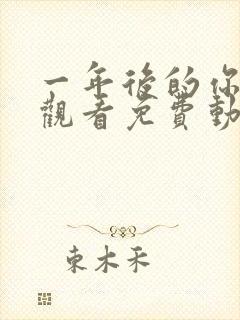 一年後的你
觀看免費動
東木禾